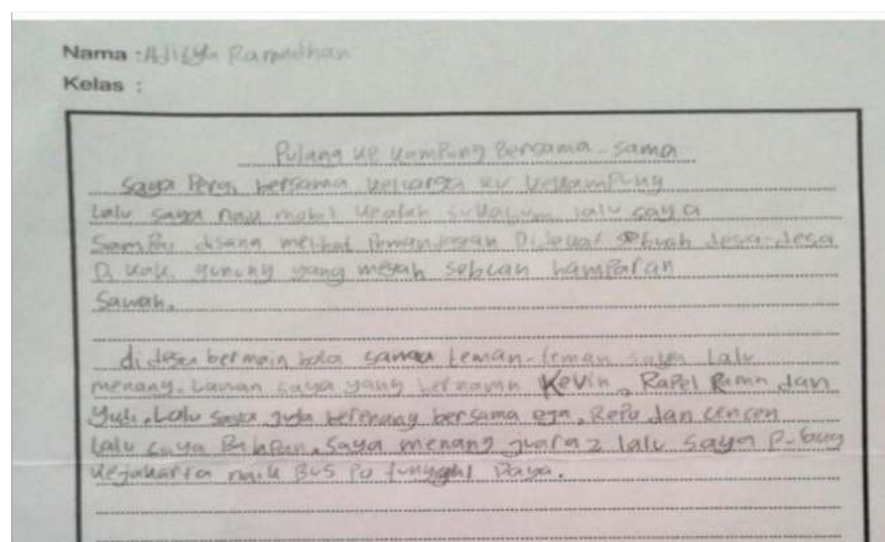 Nama : Aditya Ramadhan
Kelas :
Pulang ke kampung Bersama-sama
Saya Pergi bersama keluarga ke kekampung
Lalu saya naik mobil kearah lalu saya
Sampai disana melihat Pemandangan sebuah desa-desa
Di kaki gunung yang megah hamparan
Sawah.
di desa bermain bola sama teman-teman saya Lalu
menang. Lawan saya yang bernama Kevin, Rapel Rama dan
Yudi. Lalu saya juga berenang bersama ega, Repa dan cencen
Lalu saya Balapan. Saya menang juara 2 lalu saya
kejakarta naik BUS Po tunggal Daya.